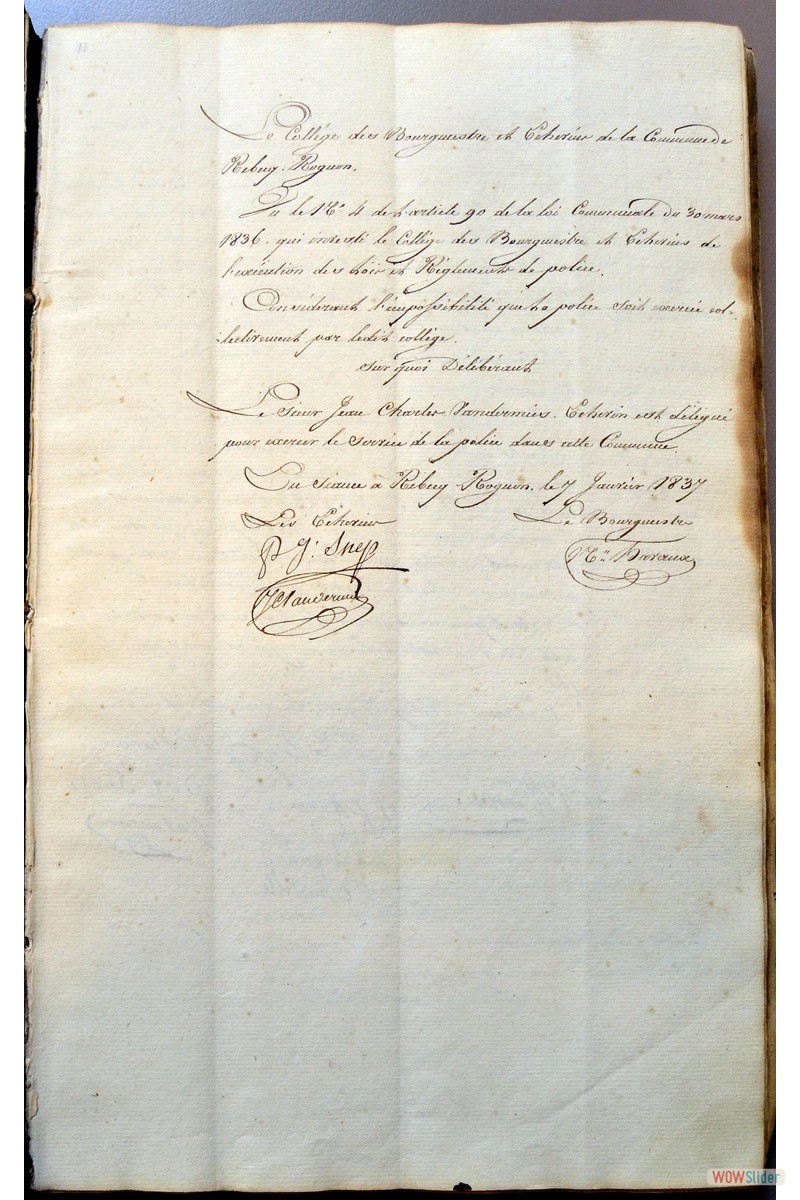 11
Le Collége des Bourgmestre et Echevins de la Commune de
Rebecq-Rognon.
Vu le No. 4 de l'article 90 de la loi Communale du 30 mars
1836. qui investi le Collége des Bourgmestre et Echevins de
l'exécution des lois et Réglements de police.
Considérant l'impossibilité que la police soit exercée col-
-lectivement par ledit collége.
Sur quoi Délibérant
Le Sieur Jean Charles Vandermies. Echevin est délégué
pour exercer le service de la police dans cette Commune.
En Séance à Rebecq-Rognon. le 7 Janvier 1837
Les Echevins
Le Bourgmestre
WOWSlider